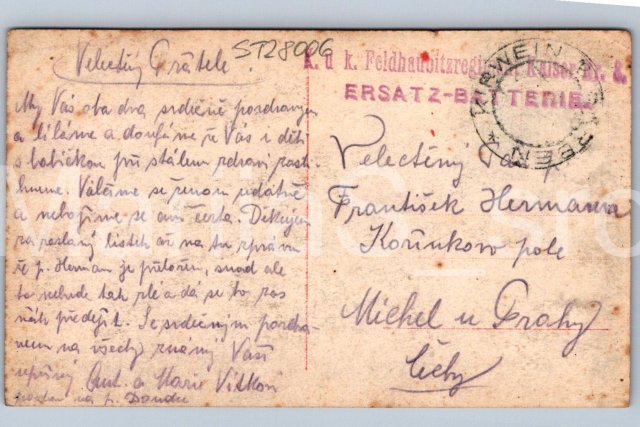 ST28006
Velectěný Přátele.
My Vás oba dva srdečně pozdravujem
a líbáme a doufáme že Vás i dětí
s babičkou při stálem zdraví zast
hneme. Válčíme se ženou udatně
a nebojíme se ani čerta. Děkujem
za zaslaný lístek až na tu zprávu
že p. Herman je přeložen, snad ale
to nebude tak zlé a dá se to zas
předejít. Se srdečným pozdra
vem na všechy známý Vaši
upřímný Ant. a Marie Vítkovi
pozdrav na p. Dandu
k. u k. Feldhaubitzregiment Kaiser Nr.
ERSATZ-BATTERIE.
Velectěný Pan
František Hermann
Kořínkovo pole
Michel u Prahy
Čechy